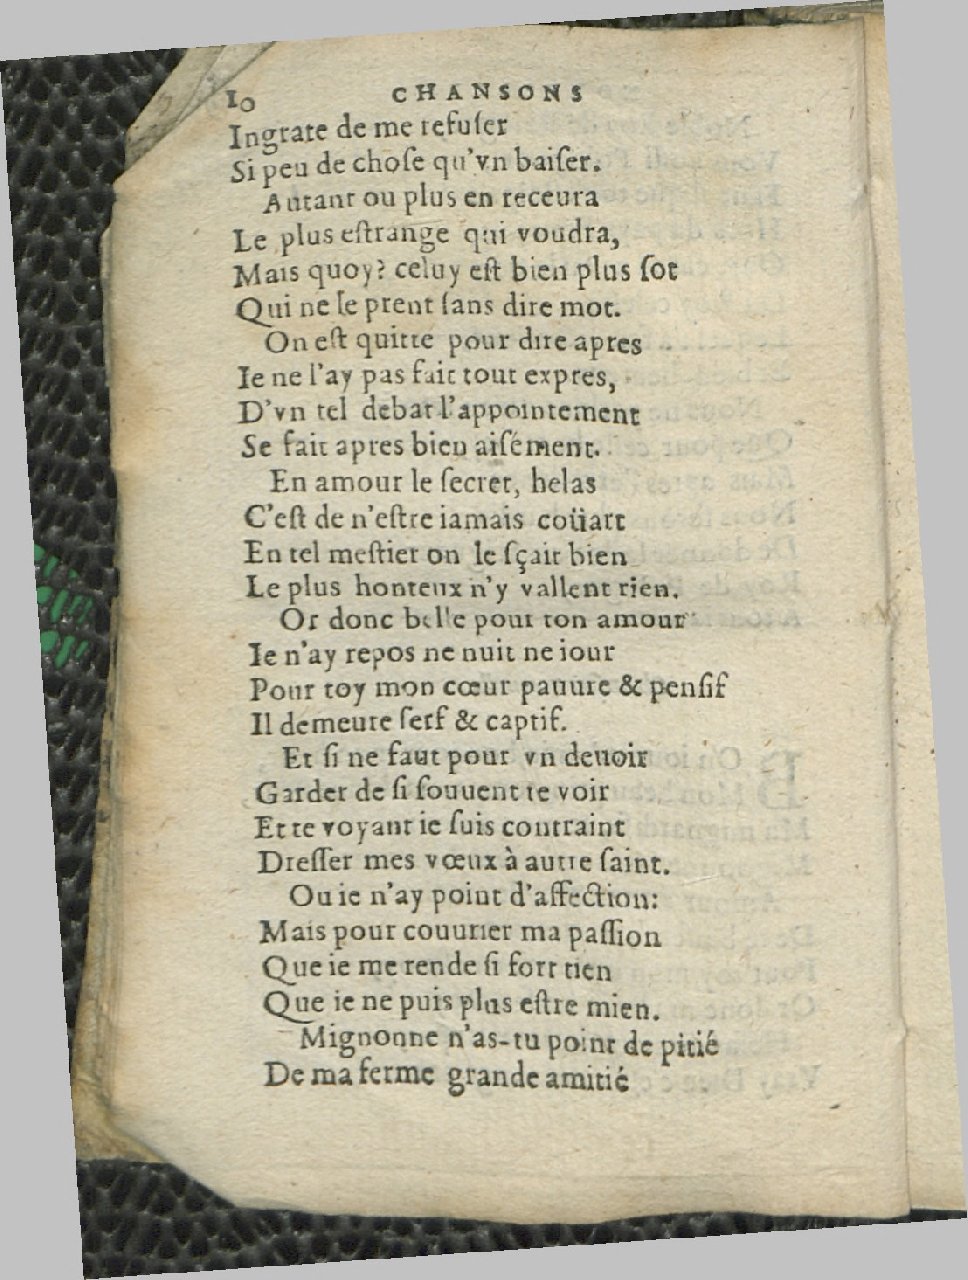 10 CHANSONS
Ingrate de me refuſer
Si peu de choſe qu'vn baiſer.
Autant ou plus en receura
Le plus eſtrange qui voudra,
Mais quoy? celuy eſt bien plus ſot
Qui ne le prent ſans dire mot.
On eſt quitte pour dire apres
Ie ne l'ay pas fait tout expres,
D'vn tel debat l'appointement
Se fait apres bien aiſément.
En amour le ſecret, helas
C'eſt de n'eſtre iamais coüart
En tel meſtier on le ſçait bien
Le plus honteux n'y vallent rien.
Or donc belle pour ton amour
Ie n'ay repos ne nuit ne iour
Pour toy mon cœur pauure & penſif
Il demeure ſerf & captif.
Et ſi ne faut pour vn deuoir
Garder de ſi ſouuent te voir
Et te voyant ie ſuis contraint
Dreſſer mes vœux à autre ſaint.
Ou ie n'ay point d'affection:
Mais pour couurier ma paſſion
Que ie me rende ſi fort tien
Que ie ne puis plus eſtre mien.
Mignonne n'as-tu point de pitié
De ma ferme grande amitié